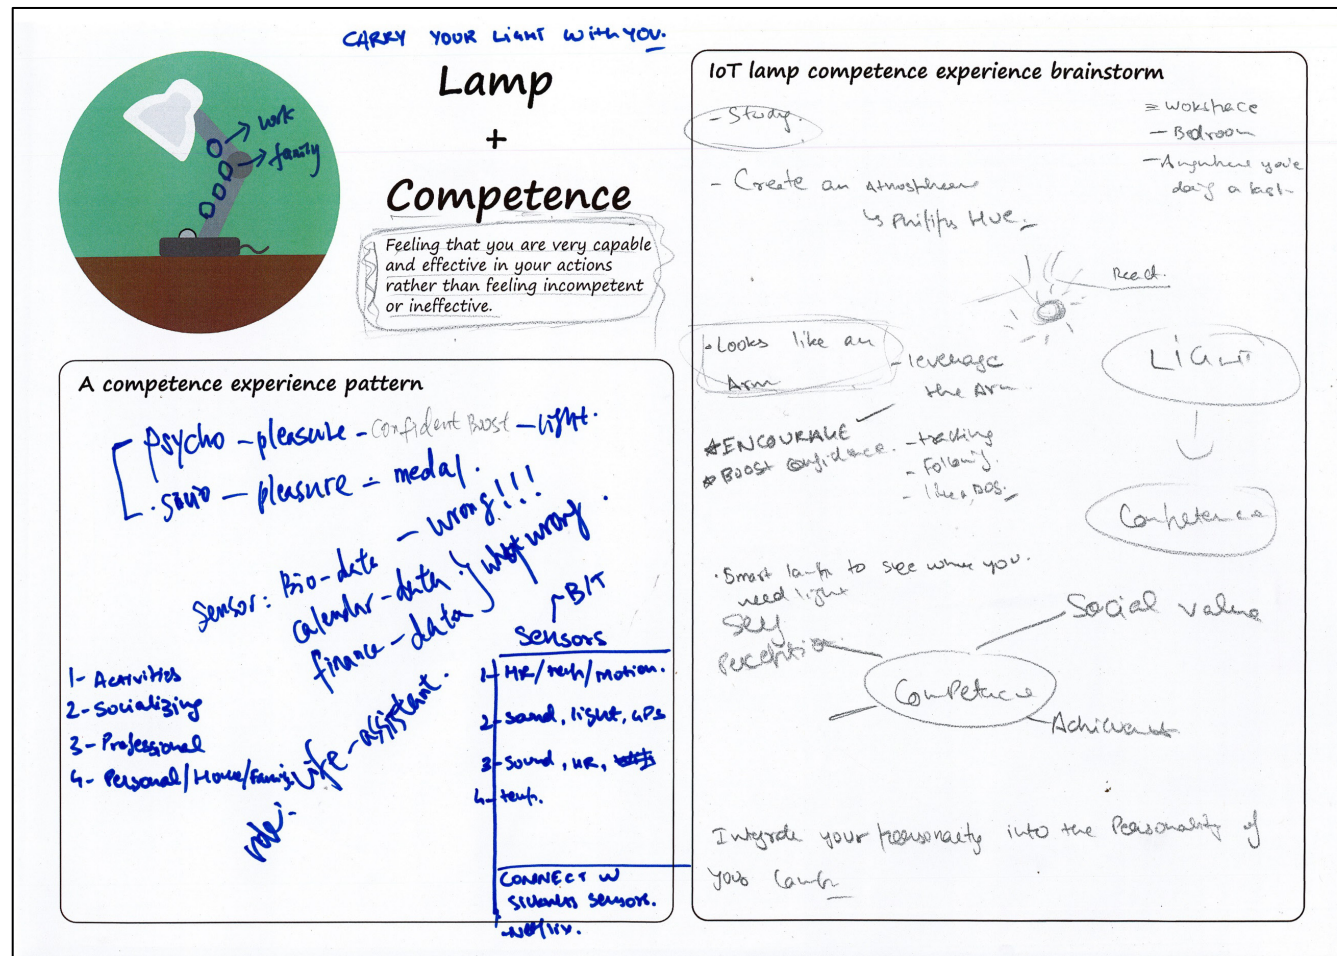 CARRY YOUR LIGHT WITH YOU.
Lamp
+
Competence
Feeling that you are very capable
and effective in your actions
rather than feeling incompetent
or ineffective.
work
family
A competence experience pattern
Psycho - pleasure - Confident Boost - light.
socio - pleasure - medal.
Sensor: Bio-data - wrong!!!
calendar-data
finance-data
what wrong.
role: life-assistant.
1- Activities
2- Socializing
3- Professional
4- Personal/Home/Family
B/T
Sensors
1- HR/temp/motion.
2- sound, light, GPS
3- sound, HR,
4- temp.
CONNECT W
sensors.
-Netflix.
IoT lamp competence experience brainstorm
- Study.
= workspace
- Bedroom
- Anywhere you're
doing a task
- Create an Atmosphere
↳ Philips HUE.
React.
• Looks like an
Arm
- leverage
the Arm.
ENCOURAGE
BOOST confidence.
- tracking
- Following.
- like a DOG.
LIGHT
Competence
• Smart lamp to see where you
need light
Self
Perception
Social value
Competence
Achievement
Integrate your personality into the Personality of
your lamp